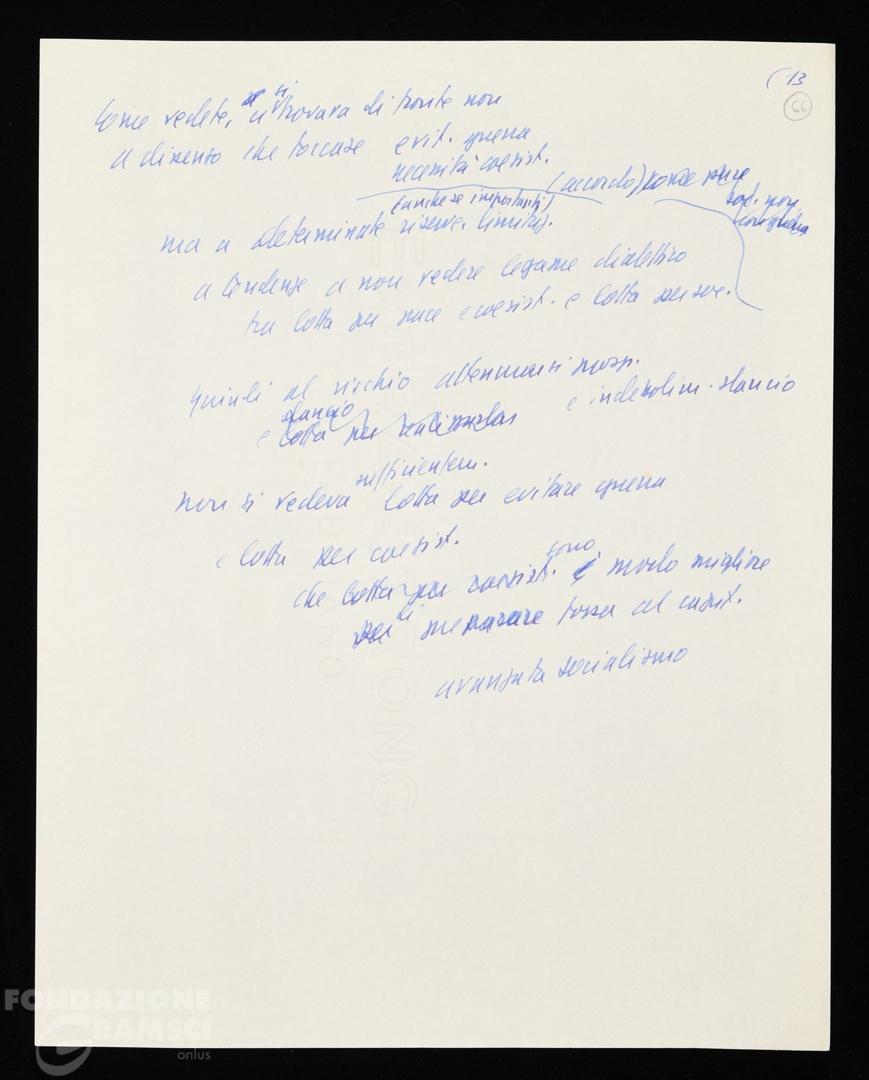 (13
66
Come vedete, ci si trovava di fronte non
a dissenso che toccasse evit. guerra
necessità coesist.
(accordo) forze pace
(anche se importanti)
ma a determinate riserve, limitaz.
a tendenze a non vedere legame dialettico
tra lotta per pace e coesist. e lotta per soc.
quindi al rischio attenuarsi prosp.
slancio
e lotta per realizzarla e indebolim. slancio
sufficientem.
non si vedeva lotta per evitare guerra
e lotta per coesist.
sono
che lotta per coesist. è modo migliore
per preparare forza al capit.
avanzata socialismo
FONDAZIONE
GRAMSCI
onlus